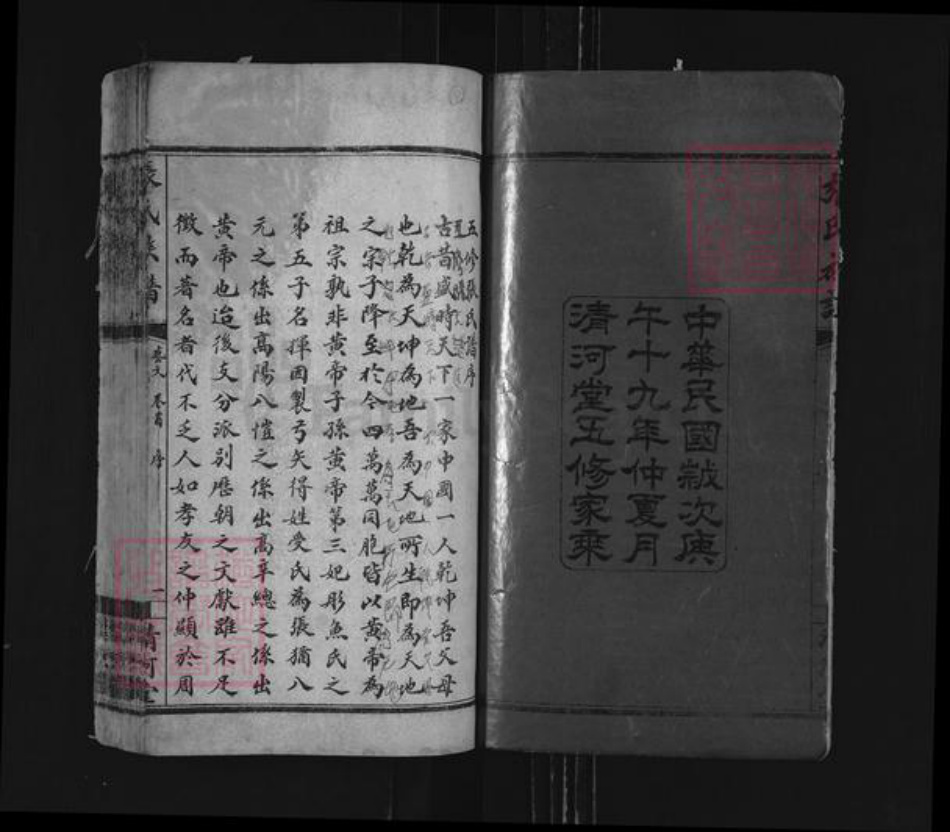 中華民國歲次庚
午十九年仲夏月
清河堂五修家乘
五修張氏譜序
古昔盛時天下一家中國一人乾坤吾父母
也乾為天坤為地吾為天地所生即為天地
之宗子降至於今四萬萬同胞皆以黃帝為
祖宗孰非黃帝子孫黃帝第三妃彤魚氏之
第五子名揮因製弓矢得姓受氏為張猶八
元之係出高陽八愷之係出高辛總之係出
黃帝也迨後支分派別歷朝之文獻雖不足
徵而著名者代不乏人如孝友之仲顯於周
張氏族譜
卷首
序
一
清河堂